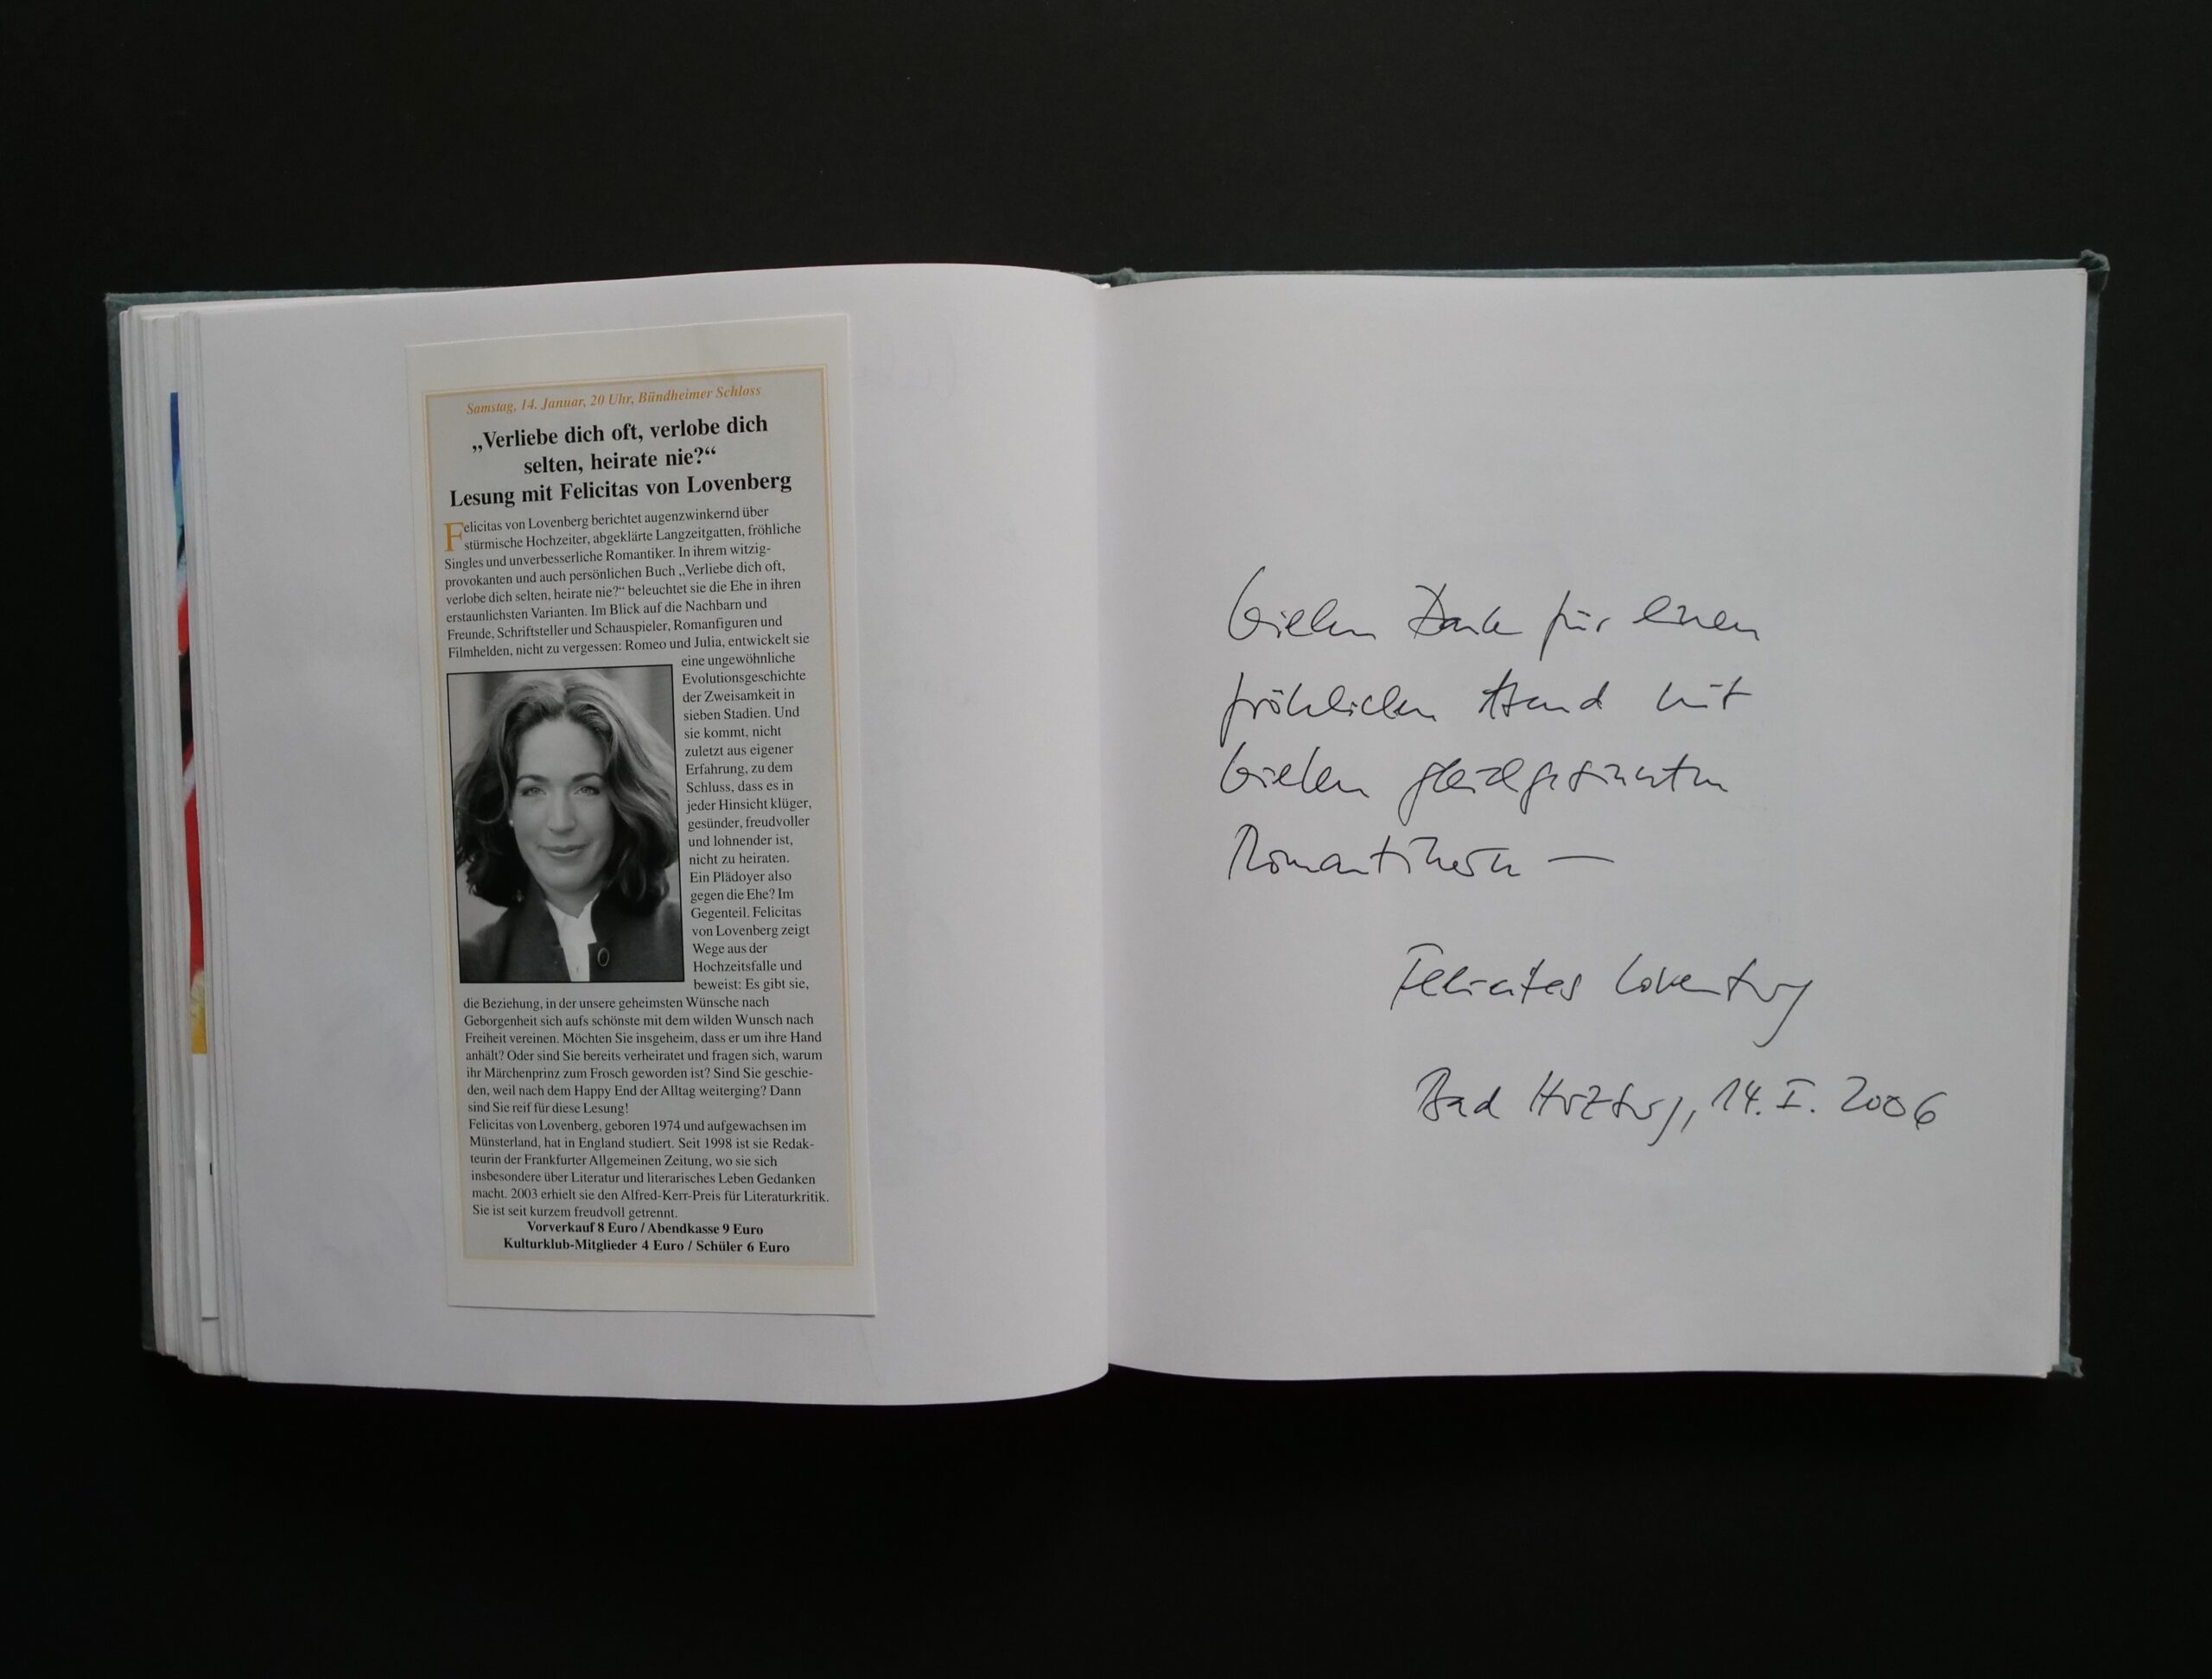 Samstag, 14. Januar, 20 Uhr, Bündheimer Schloss
„Verliebe dich oft, verlobe dich
selten, heirate nie?“
Lesung mit Felicitas von Lovenberg
Felicitas von Lovenberg berichtet augenzwinkernd über
stürmische Hochzeiter, abgeklärte Langzeitgatten, fröhliche
Singles und unverbesserliche Romantiker. In ihrem witzig-
provokanten und auch persönlichen Buch „Verliebe dich oft,
verlobe dich selten, heirate nie?“ beleuchtet sie die Ehe in ihren
erstaunlichsten Varianten. Im Blick auf die Nachbarn und
Freunde, Schriftsteller und Schauspieler, Romanfiguren und
Filmhelden, nicht zu vergessen: Romeo und Julia, entwickelt sie
eine ungewöhnliche
Evolutionsgeschichte
der Zweisamkeit in
sieben Stadien. Und
sie kommt, nicht
zuletzt aus eigener
Erfahrung, zu dem
Schluss, dass es in
jeder Hinsicht klüger,
gesünder, freudvoller
und lohnender ist,
nicht zu heiraten.
Ein Plädoyer also
gegen die Ehe? Im
Gegenteil. Felicitas
von Lovenberg zeigt
Wege aus der
Hochzeitsfalle und
beweist: Es gibt sie,
die Beziehung, in der unsere geheimsten Wünsche nach
Geborgenheit sich aufs schönste mit dem wilden Wunsch nach
Freiheit vereinen. Möchten Sie insgeheim, dass er um ihre Hand
anhält? Oder sind Sie bereits verheiratet und fragen sich, warum
ihr Märchenprinz zum Frosch geworden ist? Sind Sie geschie-
den, weil nach dem Happy End der Alltag weiterging? Dann
sind Sie reif für diese Lesung!
Felicitas von Lovenberg, geboren 1974 und aufgewachsen im
Münsterland, hat in England studiert. Seit 1998 ist sie Redak-
teurin der Frankfurter Allgemeinen Zeitung, wo sie sich
insbesondere über Literatur und literarisches Leben Gedanken
macht. 2003 erhielt sie den Alfred-Kerr-Preis für Literaturkritik.
Sie ist seit kurzem freudvoll getrennt.
Vorverkauf 8 Euro / Abendkasse 9 Euro
Kulturklub-Mitglieder 4 Euro / Schüler 6 Euro
Vielen Dank für einen
fröhlichen Abend mit
vielen gleichgesinnten
Romantikern —
Felicitas Lovenberg
Bad Harzburg, 14. I. 2006